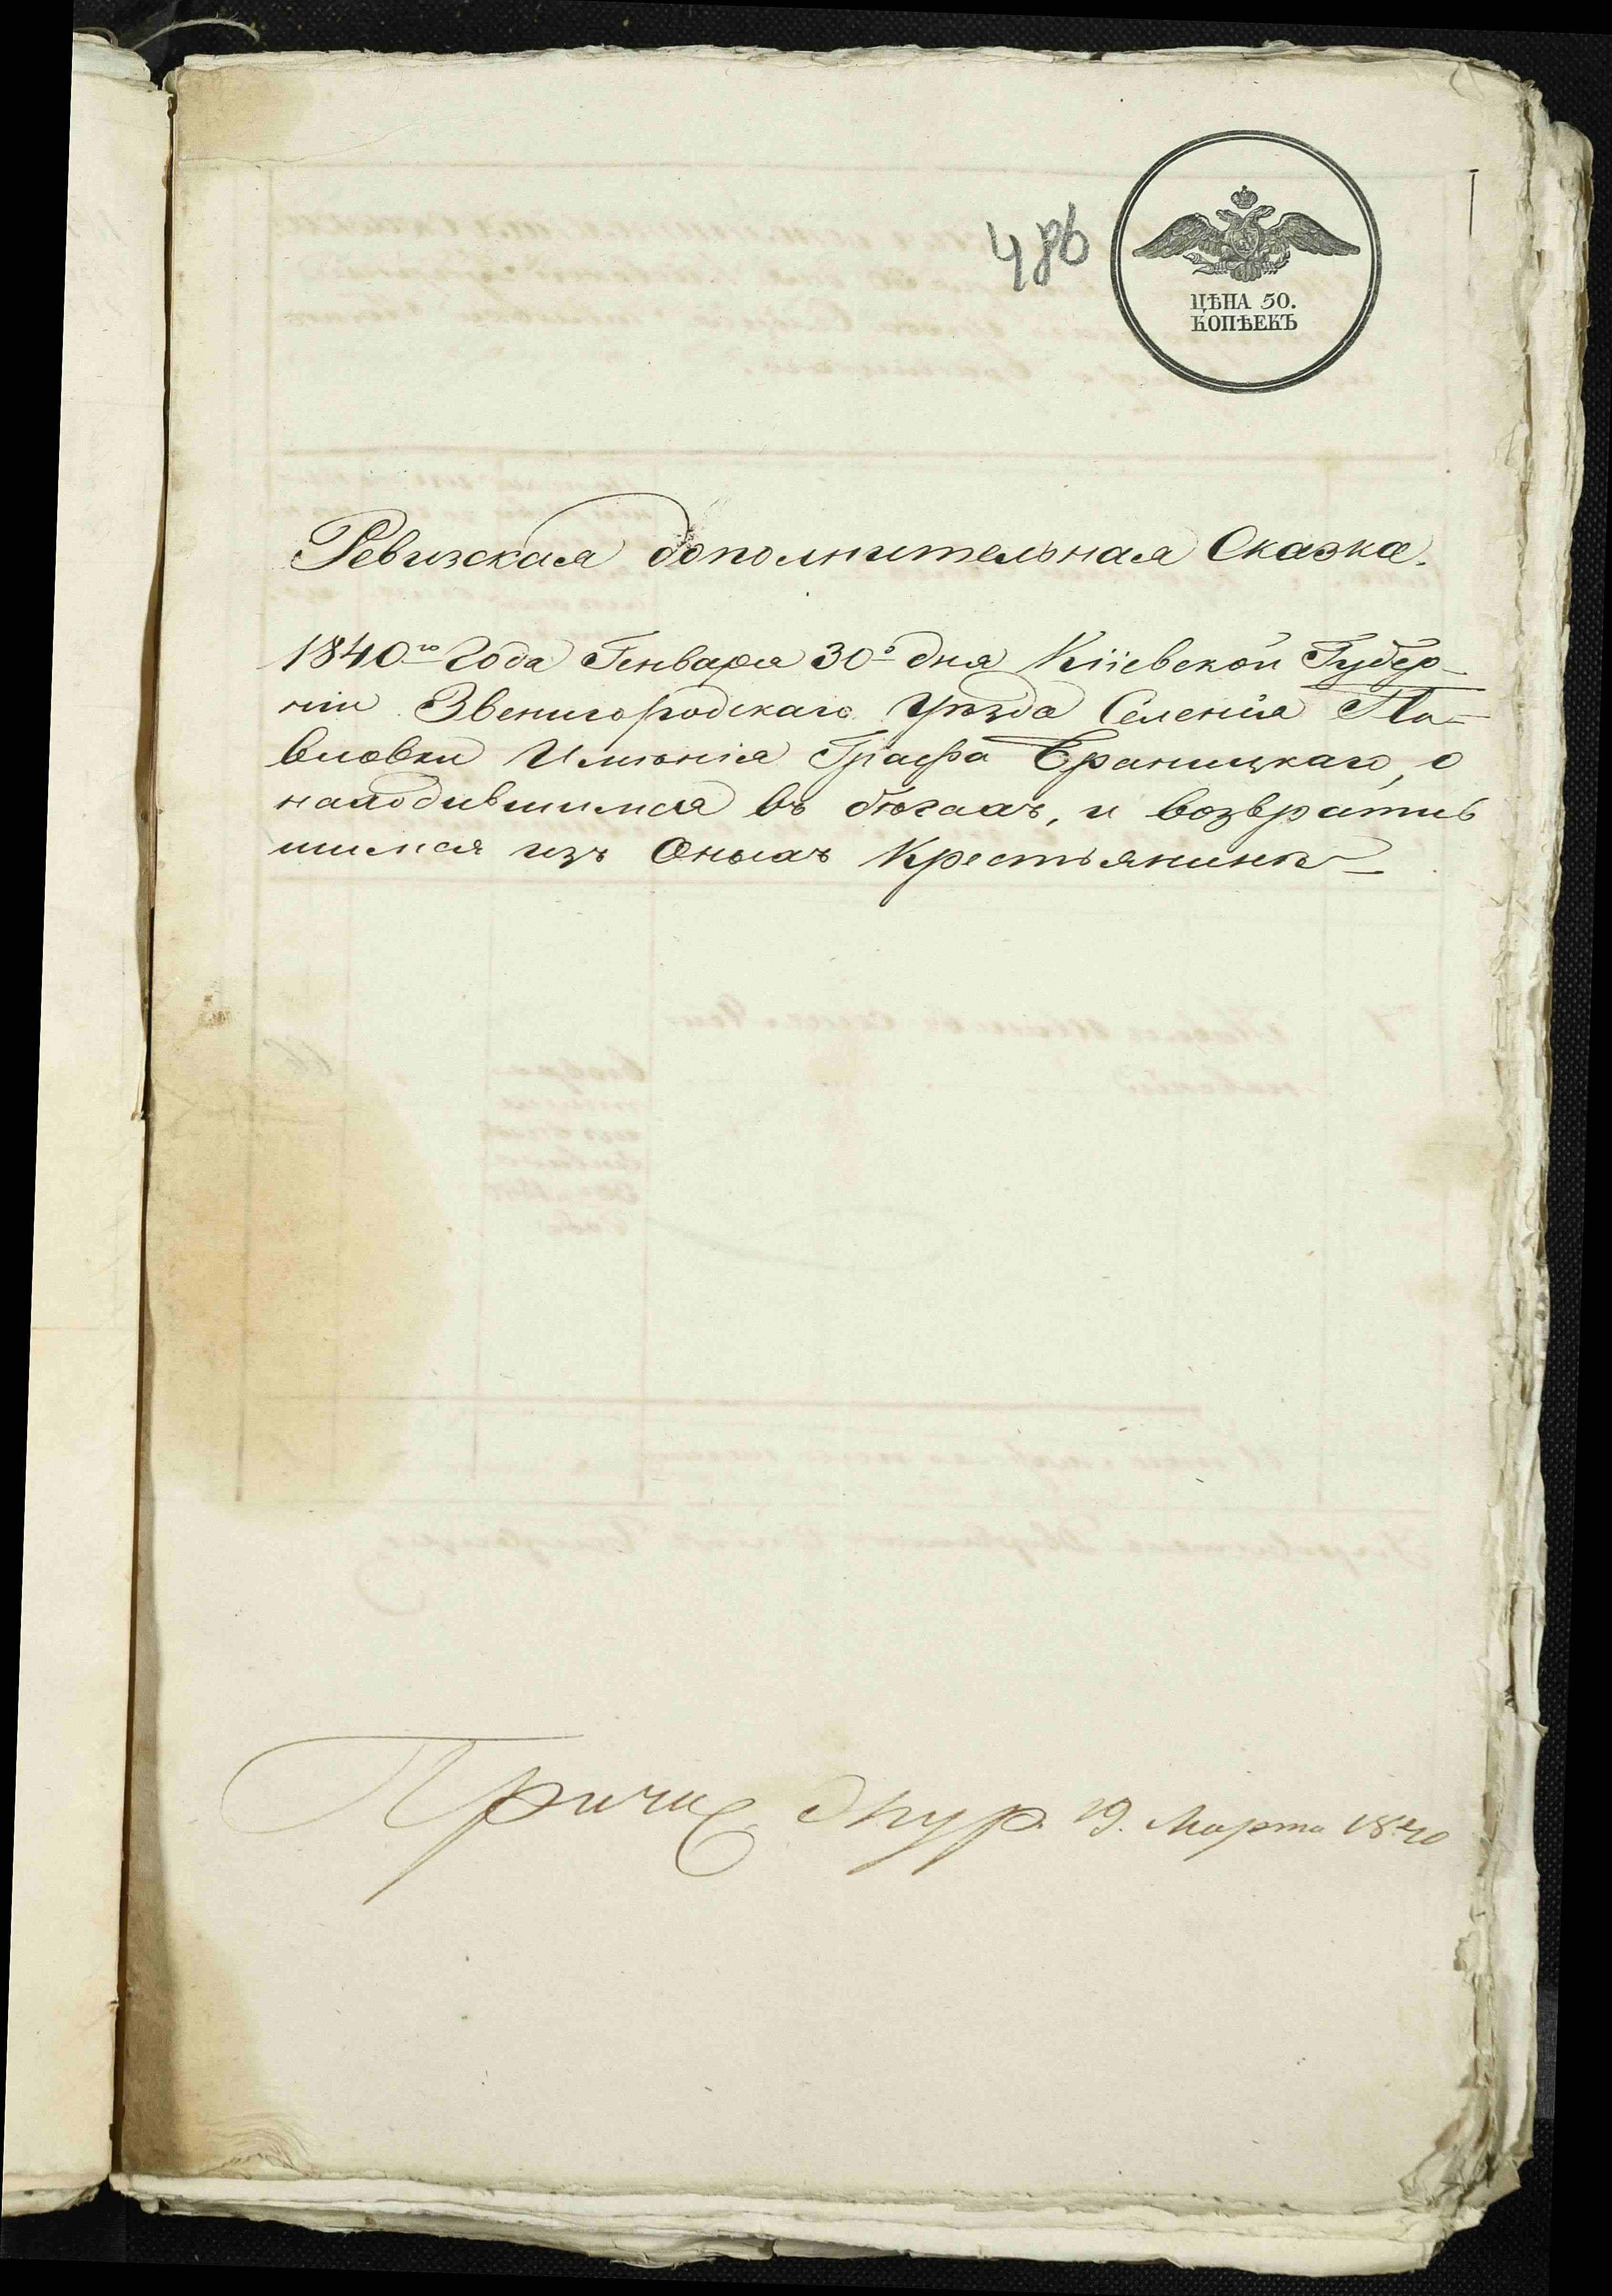 486
ЦѢНА 50.
КОПѢЕКЪ
Ревизская дополнительная Сказка.
1840го Года Генваря 30го дня Кіевской Губер-
ніи Звенигородскаго Уѣзда Селенія Па-
вловки Имѣнія Графа Браницкаго, о
находившимся въ бѣгахъ, и возвратив
шимся изъ Оныхъ Крестьянинѣ
19. Марта 1840